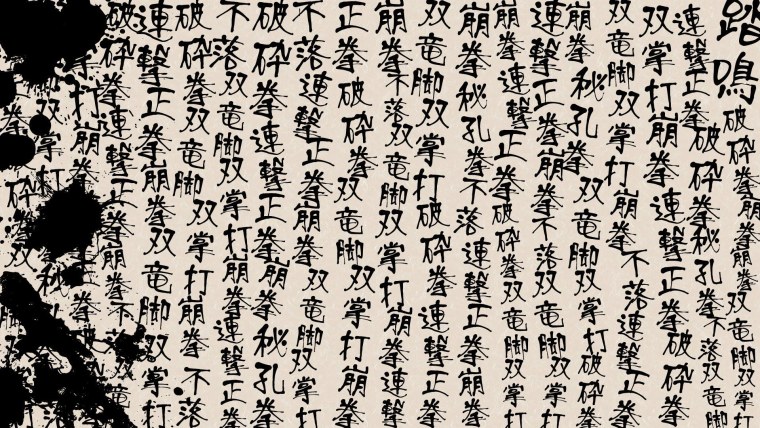 踏鳴破砕拳崩拳崩拳双竜脚双掌打
連撃正拳破砕拳秘孔拳不落双竜脚
双掌打崩拳連撃正拳破砕拳
双竜脚双掌打崩拳不落連撃正拳
崩拳秘孔拳双竜脚双掌打破砕拳
連撃正拳崩拳不落双竜脚双掌打
崩拳連撃正拳破砕拳双竜脚双掌打
崩拳秘孔拳不落連撃正拳崩拳
双竜脚双掌打破砕拳連撃正拳
崩拳不落双竜脚双掌打崩拳連撃
正拳破砕拳双竜脚双掌打崩拳
不落連撃正拳崩拳双竜脚双掌打
破砕拳連撃正拳崩拳秘孔拳
不落双竜脚双掌打崩拳連撃正拳
破砕拳双竜脚双掌打崩拳不落
連撃正拳崩拳双竜脚双掌打
破砕拳連撃正拳崩拳不落双竜
掌打崩拳
双掌打